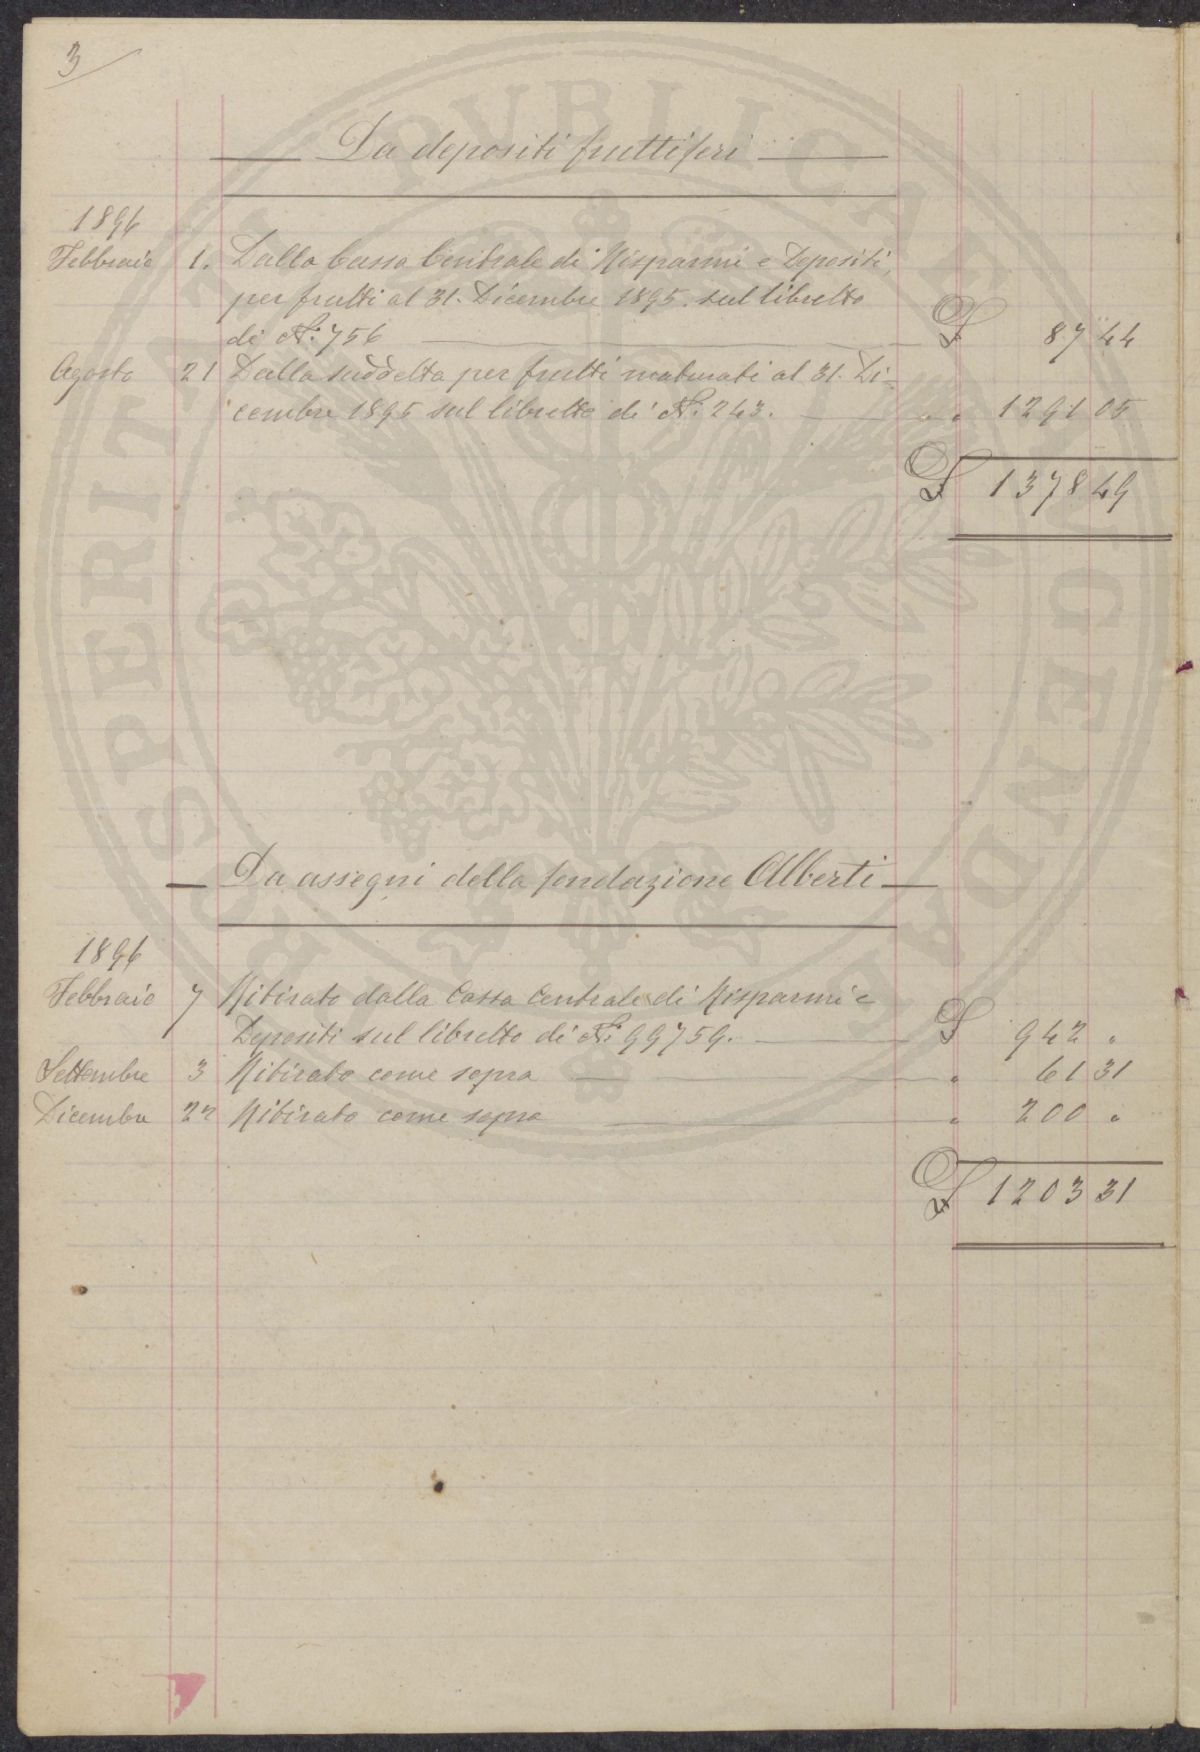 3
Da depositi fruttiferi
1896
Febbraio 1. Dalla Cassa Centrale di Risparmi e Depositi,
per frutti al 31. Dicembre 1895. sul libretto
di N.° 756 £ 87 44
Agosto 21 Dalla suddetta per frutti maturati al 31. Di=
cembre 1895 sul libretto di N.° 243. " 1291 05
£ 1378 49
Da assegni della fondazione Alberti
1896
Febbraio 7 Ritirato dalla Cassa Centrale di Risparmi e
Depositi sul libretto di N.° 99759. £ 942 "
Settembre 3 Ritirato come sopra " 61 31
Dicembre 22 Ritirato come sopra " 200 "
£ 1203 31